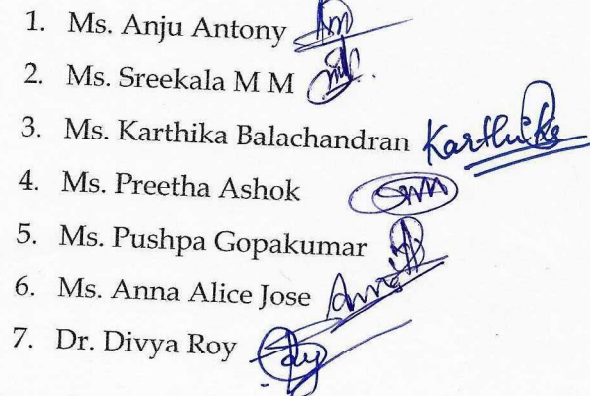 1. Ms. Anju Antony
2. Ms. Sreekala M M
3. Ms. Karthika Balachandran Karthika
4. Ms. Preetha Ashok
5. Ms. Pushpa Gopakumar
6. Ms. Anna Alice Jose
7. Dr. Divya Roy